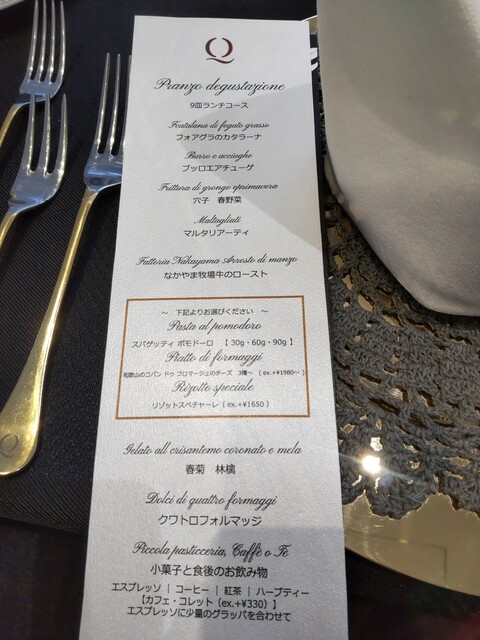 Q
Pranzo degustazione
9皿ランチコース
Fcatalana di fegato grasso
フォアグラのカタラーナ
Burro e acciughe
ブッロエアチューゲ
Frittura di grongo eprimavera
穴子 春野菜
Maltagliati
マルタリアーティ
Fattoria Nakayama Arrosto di manzo
なかやま牧場牛のロースト
～ 下記よりお選びください ～
Pasta al pomodoro
スパゲッティ ポモドーロ 【 30g・60g・90g 】
Piatto di formaggi
和歌山のコパン ドゥ フロマージュのチーズ 3種～ ( ex.+¥1980～ )
Rizotto speciale
リゾットスペチャーレ ( ex.+¥1650 )
Gelato all crisantemo coronato e mela
春菊 林檎
Dolci di quattro formaggi
クワトロフォルマッジ
Piccola pasticceria, Caffè o Tè
小菓子と食後のお飲み物
エスプレッソ | コーヒー | 紅茶 | ハーブティー
【カフェ・コレット ( ex.+¥330) 】
エスプレッソに少量のグラッパを合わせて